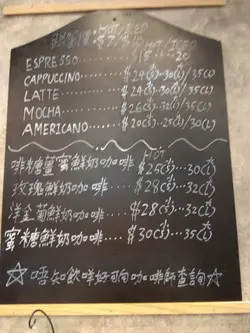 HOT/ICED
ESPRESSO
CAPPUCCINO......$24(S)-30(L)/35(L)
LATTE.......$24(S)-30(L)/35(L)
MOCHA.......$26(S)-32(L)/35(L)
AMERICANO.....$20(S)-25(L)/30(L)
HOT
啡糖薑蜜鮮奶咖啡 $25(S)...30(L)
玫瑰鮮奶咖啡...$28(S)...32(L)
洋金菊鮮奶咖啡...$28(S)...32(L)
蜜糖鮮奶咖啡....$30(S)...35(L)
☆唔知飲咩好可向咖啡師查詢☆